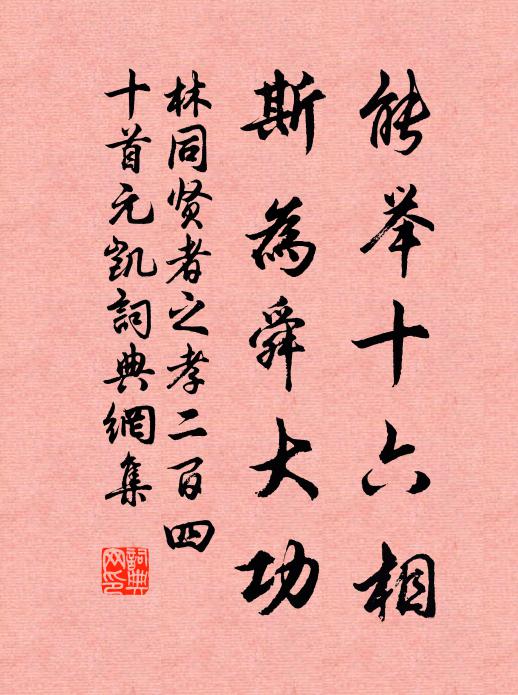 能举十六相
斯為舜大功
林同贤者之孝二百四
十首元凯詞典網集
詞典网印